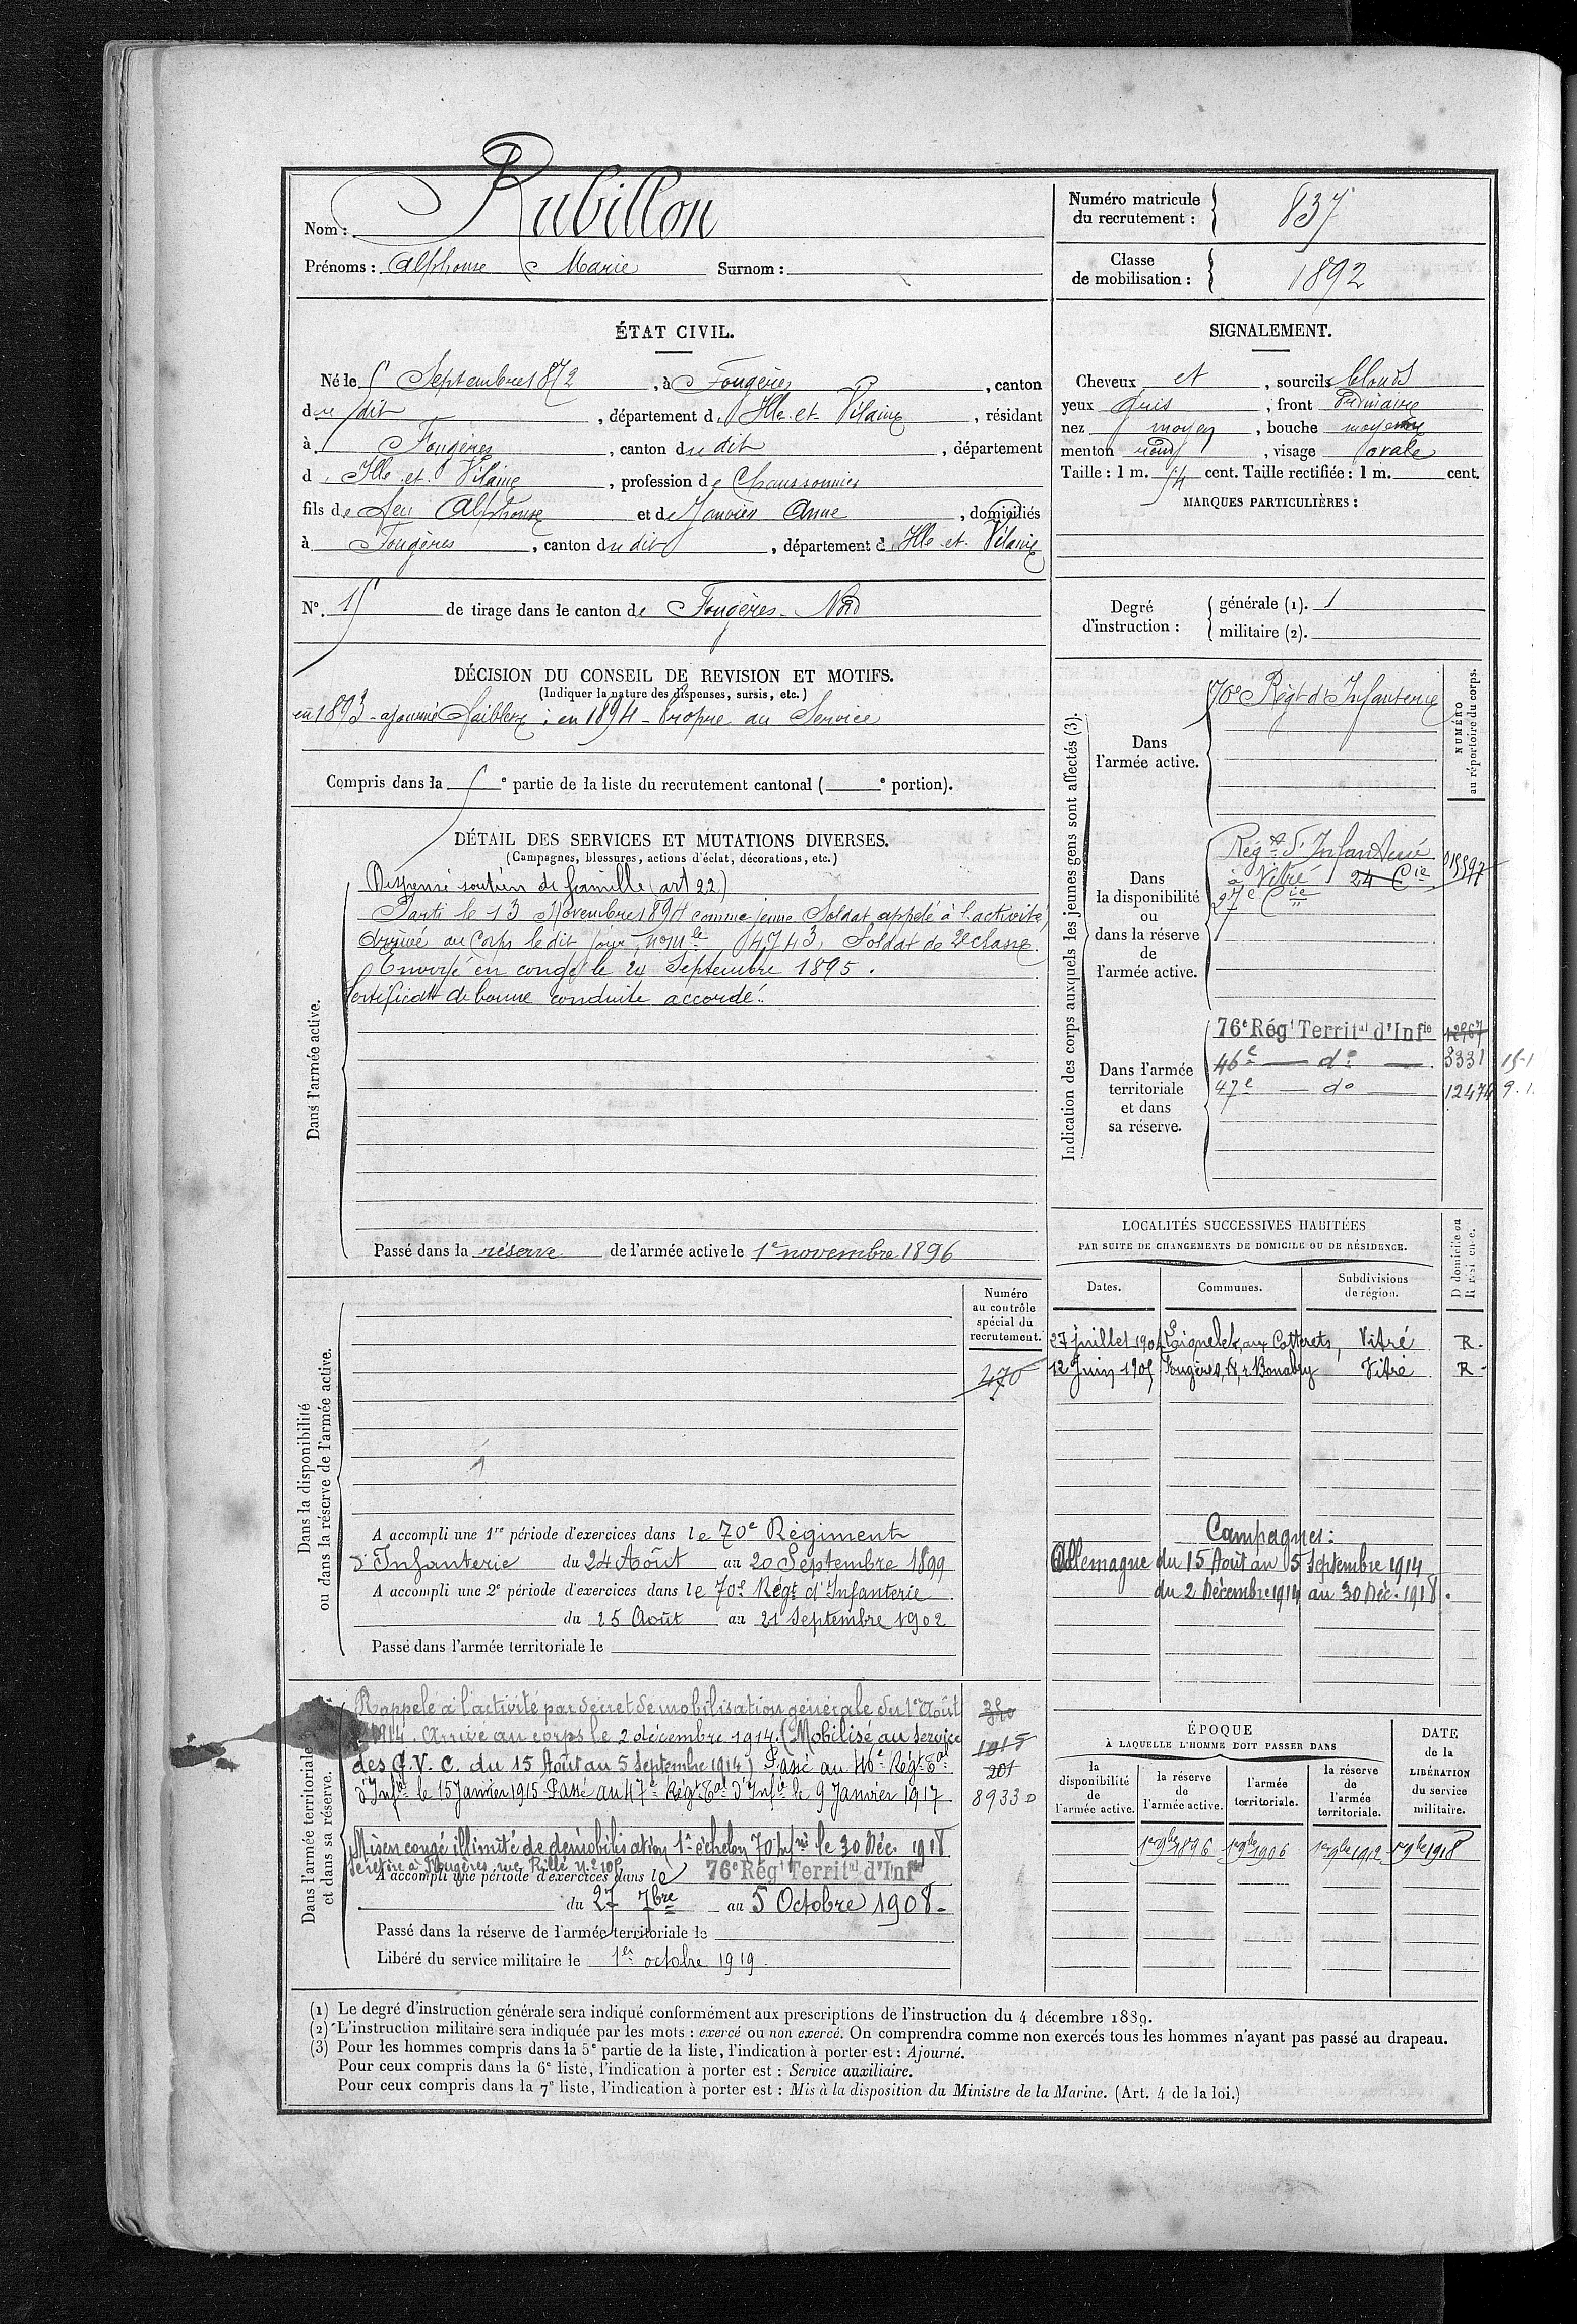 Nom : Rubillon
Prénoms : Alphonse Marie Surnom :
Numéro matricule du recrutement : 837
Classe de mobilisation : 1892
ÉTAT CIVIL.
Né le 5 Septembre 1872, à Fougères, canton
du dit, département d'Ille-et-Vilaine, résidant
à Fougères, canton du dit, département
d'Ille-et-Vilaine, profession de Chaussonnier
fils de feu Alphonse et de Janvier Anne, domiciliés
à Fougères, canton du dit, département d'Ille-et-Vilaine
N° 15 de tirage dans le canton de Fougères-Nord
SIGNALEMENT.
Cheveux et, sourcils blonds
yeux gris, front ordinaire
nez moyen, bouche moyenne
menton rond, visage ovale
Taille : 1 m. 54 cent. Taille rectifiée : 1 m. cent.
MARQUES PARTICULIÈRES :
Degré d'instruction :
générale (1). 1
militaire (2).
DÉCISION DU CONSEIL DE REVISION ET MOTIFS.
(Indiquer la nature des dispenses, sursis, etc.)
en 1893 - ajourné faiblesse ; en 1894 - Propre au Service
Compris dans la e partie de la liste du recrutement cantonal ( e portion).
DÉTAIL DES SERVICES ET MUTATIONS DIVERSES.
(Campagnes, blessures, actions d'éclat, décorations, etc.)
Dans l'armée active.
Dispensé soutien de famille (art 22)
Parti le 13 Novembre 1894 comme jeune Soldat appelé à l'activité,
Arrivé au Corps le dit jour, n° mle 4743, Soldat de 2e classe.
Envoyé en congé le 24 Septembre 1895.
Certificat de bonne conduite accordé.
Passé dans la réserve de l'armée active le 1e novembre 1896
Indication des corps auxquels les jeunes gens sont affectés (3).
NUMÉRO au répertoire du corps.
Dans l'armée active.
70e Régt d'Infanterie
Dans la disponibilité ou dans la réserve de l'armée active.
Régt d'Infanterie
à Vitré 24 Cie
27e Cie
Dans l'armée territoriale et dans sa réserve.
76e Régt Territal d'Infie 12967
46e — do — 3331 15-1
47e — do — 12474 9.1.
LOCALITÉS SUCCESSIVES HABITÉES
PAR SUITE DE CHANGEMENTS DE DOMICILE OU DE RÉSIDENCE.
Dates. Communes. Subdivisions de région. D domicile ou R résidence.
27 juillet 1904 Loignelet, aux Cotterets, Vitré R.
12 Juin 1905 Fougères, r. Bonabry Vitré R.
Campagnes :
Allemagne du 15 Août au 5 Septembre 1914
du 2 Décembre 1914 au 30 Déc. 1918.
Dans la disponibilité ou dans la réserve de l'armée active.
Numéro au contrôle spécial du recrutement.
470
A accompli une 1re période d'exercices dans le 70e Régiment
d'Infanterie du 24 Août au 20 Septembre 1899
A accompli une 2e période d'exercices dans le 70e Régt d'Infanterie
du 25 Août au 21 Septembre 1902
Passé dans l'armée territoriale le
Dans l'armée territoriale et dans sa réserve.
Rappelé à l'activité par décret de mobilisation générale du 1er Août
1914. Arrivé au corps le 2 décembre 1914. (Mobilisé au service
des G.V.C. du 15 Août au 5 Septembre 1914) Passé au 46e Régt Tal
d'Infie le 15 Janvier 1915. Passé au 47e Régt Tal d'Infie le 9 Janvier 1917
1015
201
8933 D
Mis en congé illimité de démobilisation 1er échelon 70 Infrie le 30 Déc. 1918
Se retire à Fougères, rue Rillé n° 210
A accompli une période d'exercices dans le 76e Régt Territal d'Infie
du 27 7bre au 5 Octobre 1908
Passé dans la réserve de l'armée territoriale le
Libéré du service militaire le 1er octobre 1919
ÉPOQUE
À LAQUELLE L'HOMME DOIT PASSER DANS
la disponibilité de l'armée active. la réserve de l'armée active. l'armée territoriale. la réserve de l'armée territoriale.
DATE de la LIBÉRATION du service militaire.
1er 9bre 1896 1er 9bre 1906 1er 9bre 1912 1er 9bre 1918
(1) Le degré d'instruction générale sera indiqué conformément aux prescriptions de l'instruction du 4 décembre 1889.
(2) L'instruction militaire sera indiquée par les mots : exercé ou non exercé. On comprendra comme non exercés tous les hommes n'ayant pas passé au drapeau.
(3) Pour les hommes compris dans la 5e partie de la liste, l'indication à porter est : Ajourné.
Pour ceux compris dans la 6e liste, l'indication à porter est : Service auxiliaire.
Pour ceux compris dans la 7e liste, l'indication à porter est : Mis à la disposition du Ministre de la Marine. (Art. 4 de la loi.)